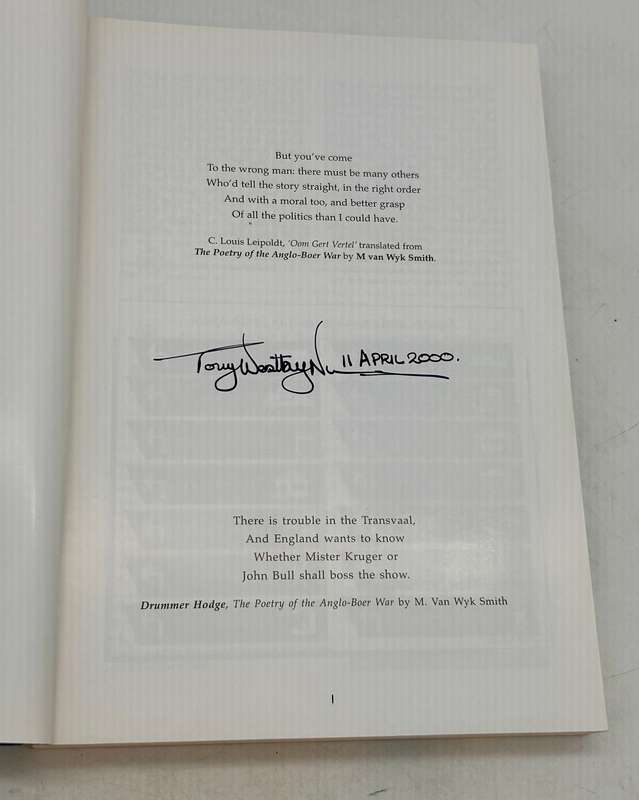 But you've come
To the wrong man: there must be many others
Who'd tell the story straight, in the right order
And with a moral too, and better grasp
Of all the politics than I could have.
C. Louis Leipoldt, 'Oom Gert Vertel' translated from
The Poetry of the Anglo-Boer War by M van Wyk Smith.
Tony 11 APRIL 2000.
There is trouble in the Transvaal,
And England wants to know
Whether Mister Kruger or
John Bull shall boss the show.
Drummer Hodge, The Poetry of the Anglo-Boer War by M. Van Wyk Smith
1